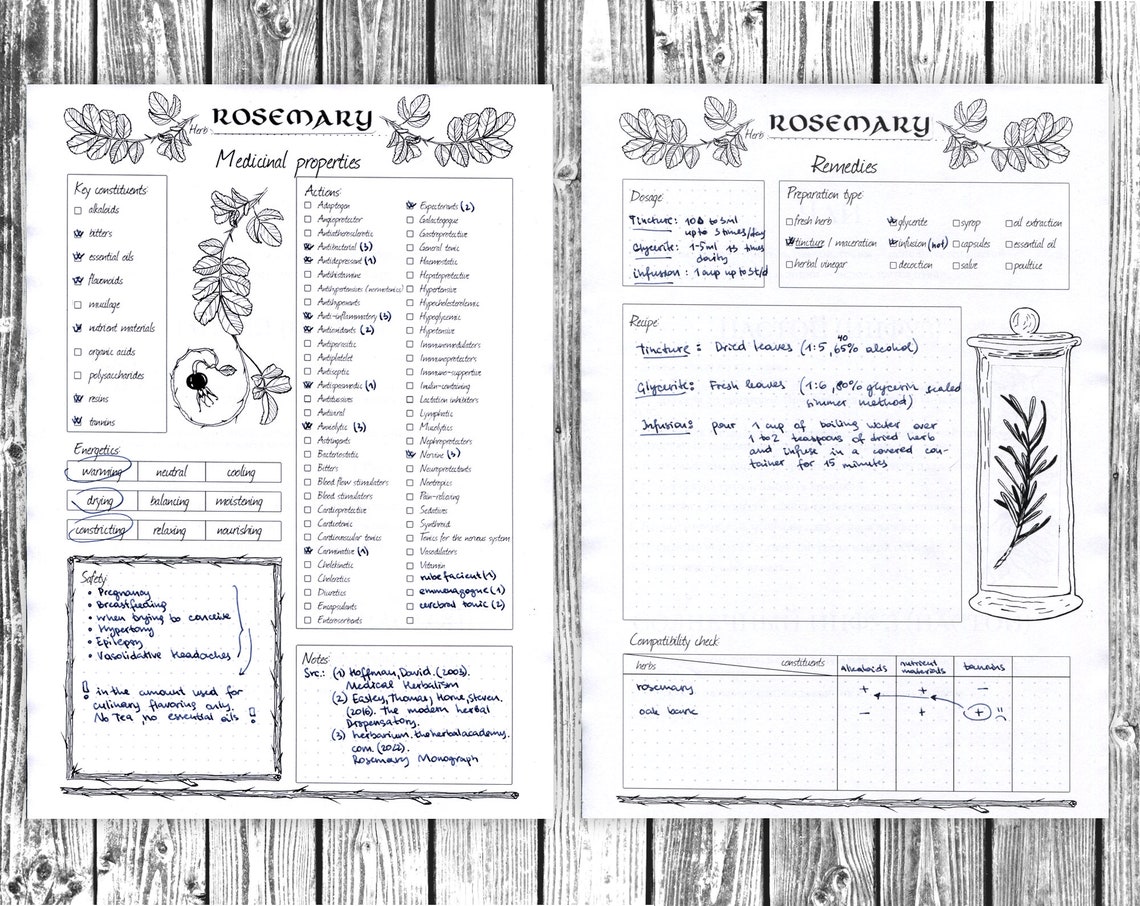 Herb ROSEMARY
Medicinal properties
Key constituents:
alkaloids
bitters
essential oils
flavonoids
mucilage
nutrient materials
organic acids
polysaccharides
resins
tannins
Energetics
warming neutral cooling
drying balancing moistening
constricting relaxing nourishing
Safety
• Pregnancy
• Breastfeeding
• when trying to conceive
• Hypertony
• Epilepsy
• Vasolidative headaches
! in the amount used for
culinary flavoring only.
No Tea no essential oils !
Actions:
Adaptogen
Angioprotector
Antiatherosclerotic
Antibacterial (3)
Antidepressant (1)
Antihistamine
Antihypertensives (normotonics)
Antihypoxants
Anti-inflammatory (3)
Antioxidants (2)
Antiparasitic
Antiplatelet
Antiseptic
Antispasmodic (1)
Antitussives
Antiviral
Anxiolytic (3)
Astringents
Bacteriostatic
Bitters
Blood flow stimulators
Blood stimulators
Cardioprotective
Cardiotonic
Cardiovascular tonics
Carminative (1)
Cholekinetic
Choleretics
Diuretics
Encapsulants
Enterosorbents
Expectorants (2)
Galactogogue
Gastroprotective
General tonic
Haemostatic
Hepatoprotective
Hypertensive
Hypocholesterolemic
Hypoglycemic
Hypotensive
Immunomodulators
Immunoprotectors
Immuno-supportive
Inulin-containing
Lactation inhibitors
Lymphatic
Mucolytics
Nephroprotectors
Nervine (3)
Neuroprotectants
Nootropics
Pain-relieving
Sedatives
Synthroid
Tonics for the nervous system
Vasodilators
Vitamin
rubefacient (1)
emmenagogue (1)
cerebral tonic (2)
Notes:
Src.: (1) Hoffman, David. (2003).
Medical Herbalism
(2) Easley, Thomas, Horne, Steven.
(2016). The modern herbal
Dispensatory.
(3) herbarium.theherbalacademy.
com. (2022).
Rosemary Monograph
Herb ROSEMARY
Remedies
Dosage:
Tincture: to 5ml
up to 3 times/day
Glycerite: 1-5ml times
daily
infusion: 1 cup up to 3t/d
Preparation type:
fresh herb glycerite syrop oil extraction
tincture / maceration infusion (hot) capsules essential oil
herbal vinegar decoction salve poultice
Recipe:
40
Tincture: Dried leaves (1:5, 65% alcohol)
Glycerite: Fresh leaves (1:6, 80% glycerin sealed
simmer method)
Infusion: pour 1 cup of boiling water over
1 to 2 teaspoons of dried herb
and infuse in a covered con-
tainer for 15 minutes
Compatibility check:
herbs constituents alcaloids nutrient materials tannins
rosemary + + −
oak bark − + +